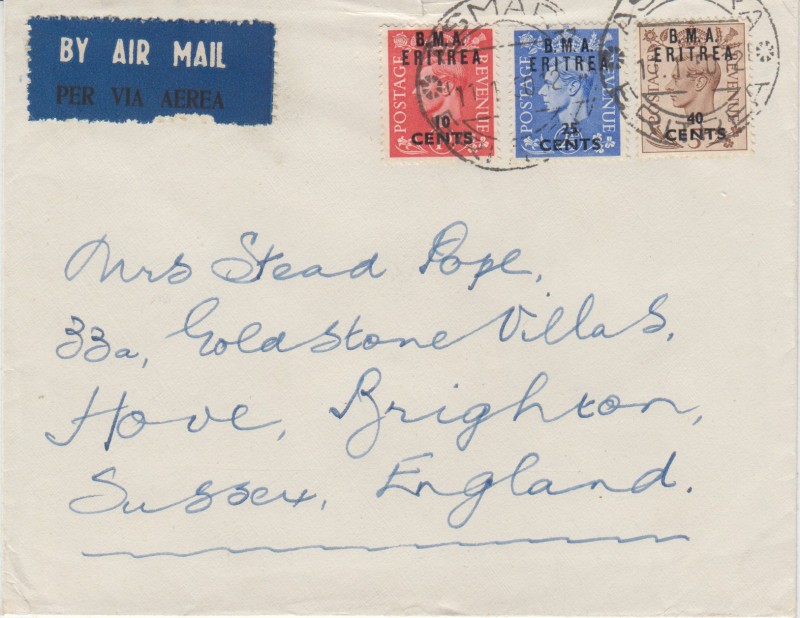 BY AIR MAIL
PER VIA AEREA
B.M.A. ERITREA
POSTAGE REVENUE
10 CENTS
B.M.A. ERITREA
POSTAGE REVENUE
25 CENTS
B.M.A. ERITREA
POSTAGE REVENUE
40 CENTS
Mrs Stead Pope,
33a, Goldstone Villas,
Hove, Brighton,
Sussex, England.